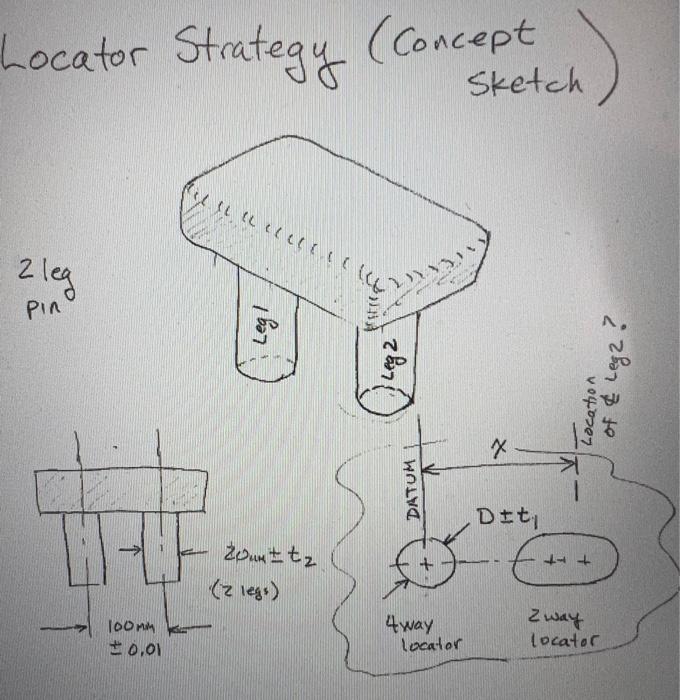 Locator Strategy (Concept
Sketch)
2 leg
pin
Leg 1
Leg 2
Location
of ⅊ Leg 2?
X
DATUM
D±t₁
20mm±t₂
(2 legs)
100mm
±0.01
4way
locator
2way
locator